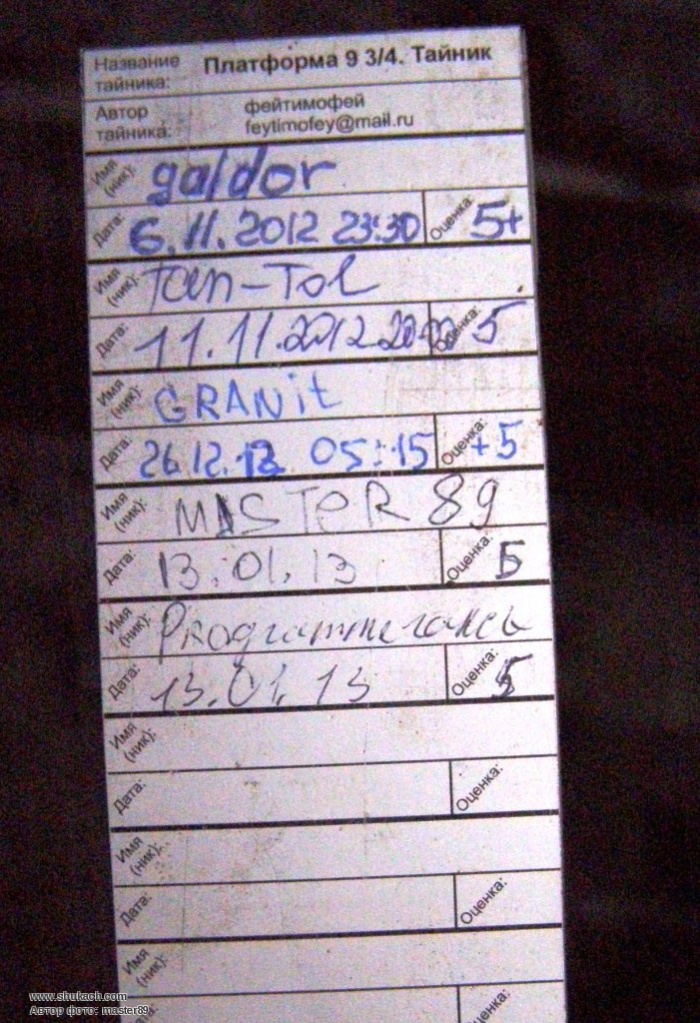 Название Платформа 9 3/4. Тайник
тайника:
Автор фейтимофей
тайника: feytimofey@mail.ru
Имя (ник): galdor
Дата: 6.11.2012 23:30 Оценка: 5+
Имя (ник): tan-Tol
Дата: 11.11.2012 Оценка: 5
Имя (ник): GRANit
Дата: 26.12.12 05:15 Оценка: +5
Имя (ник): MASTeR 89
Дата: 13.01.13 Оценка: 5
Имя (ник):
Дата: 13.01.13 Оценка: 5
Имя (ник):
Дата: Оценка:
Имя (ник):
Дата: Оценка:
Имя (ник):
Дата: Оценка:
www.shukach.com
Автор фото: master89